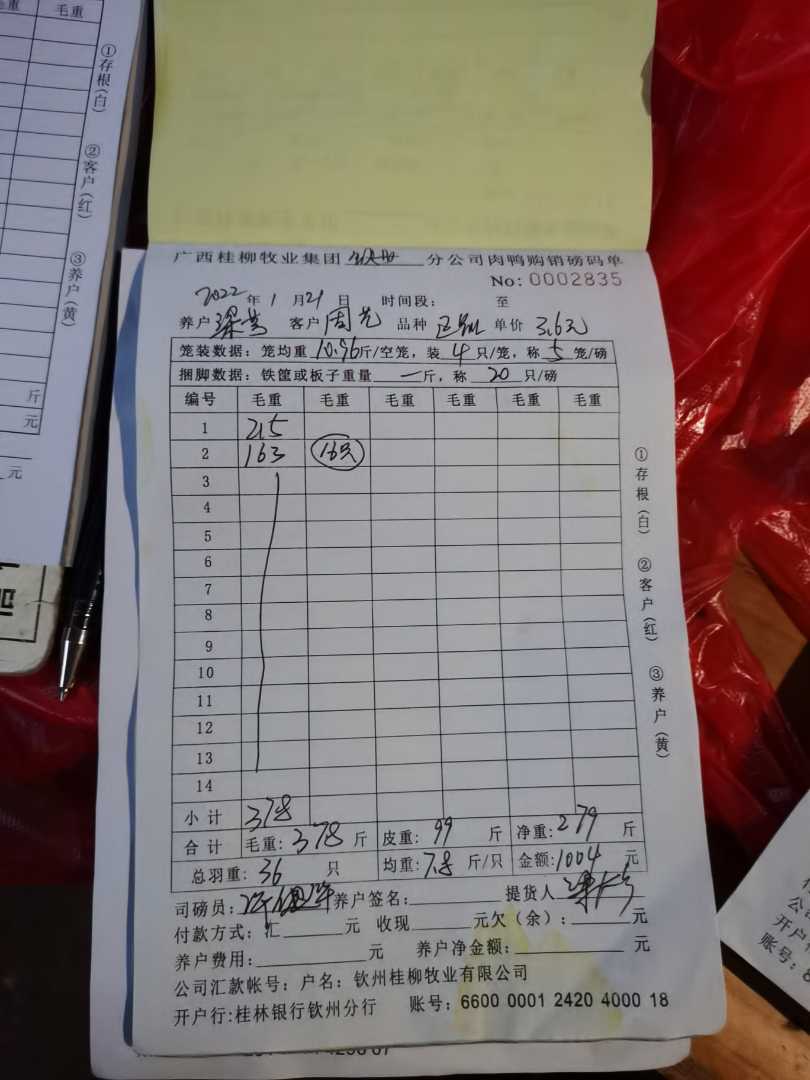 毛重 毛重
①存根(白) ②客户(红) ③养户(黄)
斤
元
元
广西桂柳牧业集团 分公司肉鸭购销磅码单
No: 0002835
2022年 1月21日 时间段: 至
养户 梁 客户 周 品种 单价 3.6元
笼装数据: 笼均重 10.96斤/空笼, 装 4 只/笼, 称 5 笼/磅
捆脚数据: 铁筐或板子重量 一 斤, 称 20 只/磅
编号 毛重 毛重 毛重 毛重 毛重 毛重
1 215
2 163 16只
3
4
5
6
7
8
9
10
11
12
13
14
小计 378
合计 毛重: 378 斤 皮重: 99 斤 净重: 279 斤
总羽重: 36 只 均重: 7.8 斤/只 金额: 1004 元
司磅员: 养户签名: 提货人
付款方式: 汇 元 收现 元欠(余): 元
养户费用: 元 养户净金额: 元
公司汇款帐号: 户名: 钦州桂柳牧业有限公司
开户行:桂林银行钦州分行 账号: 6600 0001 2420 4000 18
①存根(白) ②客户(红) ③养户(黄)
开户行
账号: